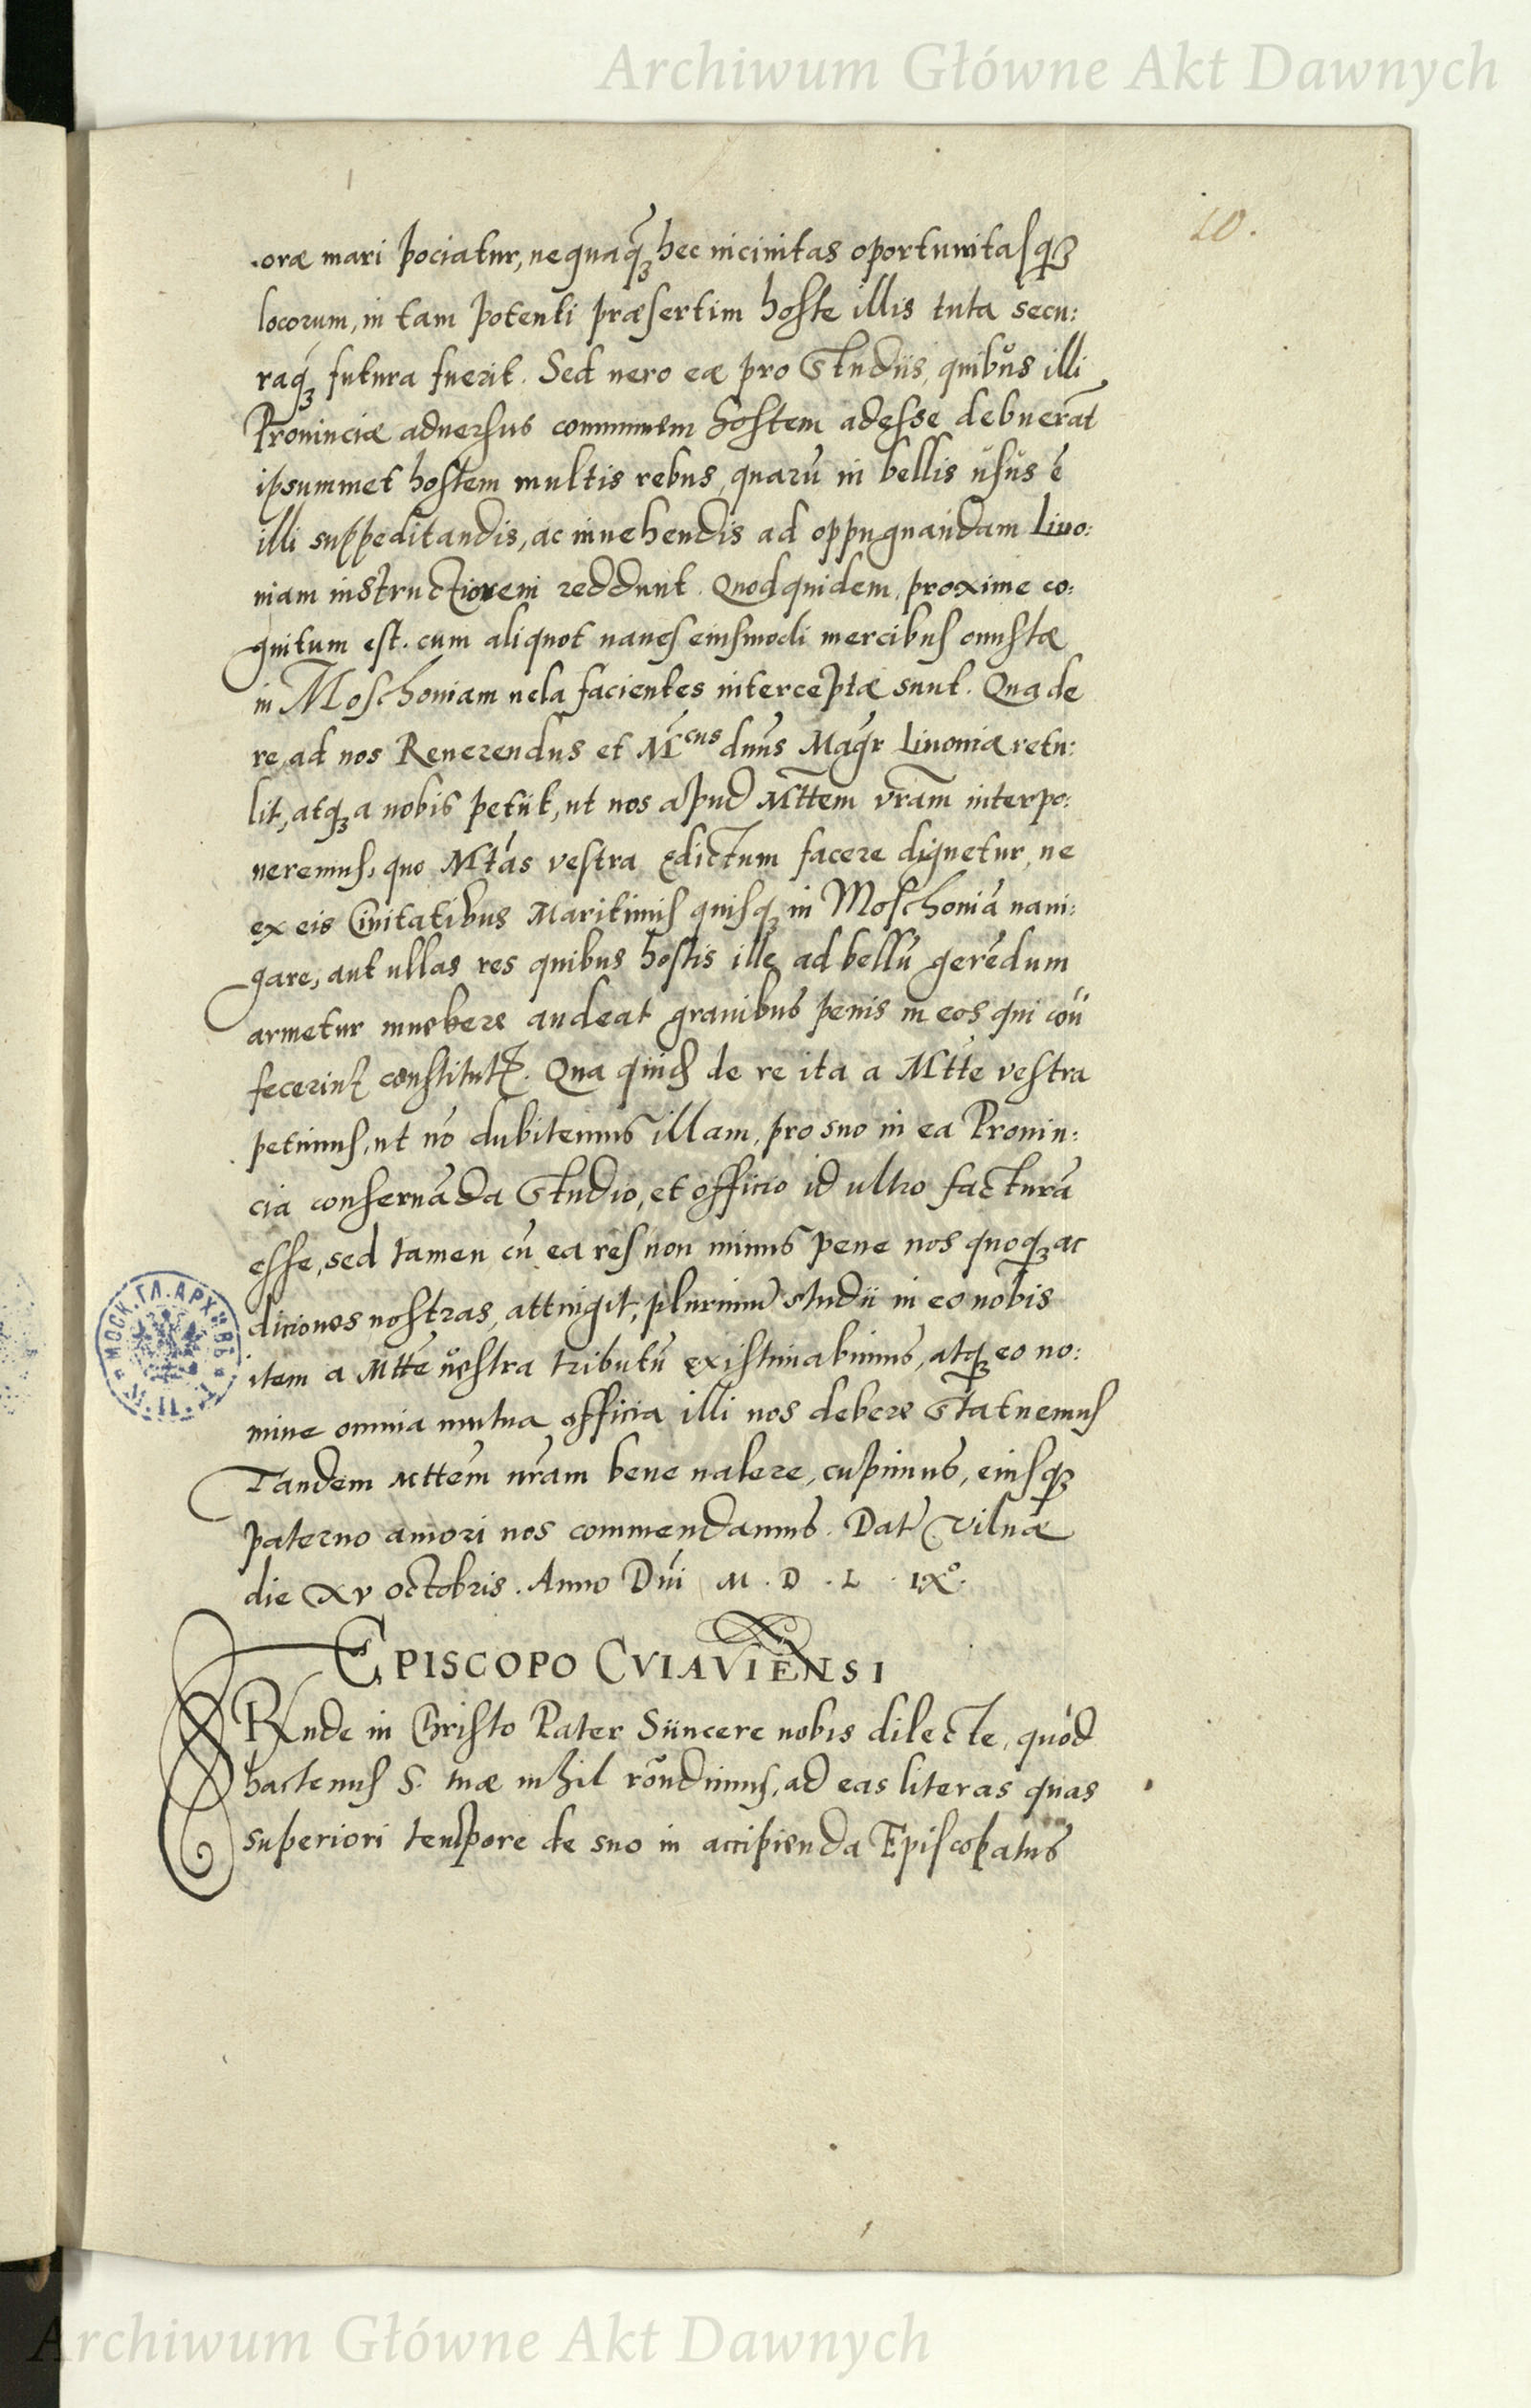 Archiwum Główne Akt Dawnych
10.
oræ mari pociatur, nequaq̃ʒ hec uicinitas oportunitasqʒ
locorum, in tam potenti præsertim hoste illis tuta secu:
raqʒ futura fuerit. Sed uero eæ pro studiis, quibus illi
Prouinciæ aduersus communem hostem adesse debuerāt
ipsummet hostem multis rebus, quarū in bellis usus ē
illi suppeditandis, ac inuehendis ad oppugnandam Liuo:
niam instructiorem reddunt. Quod quidem, proxime co:
gnitum est. cum aliquot naues eiusmodi mercibus onustæ
in Moschouiam uela facientes interceptæ sunt. Qua de
re, ad nos Reuerendus et Mcus dnus Magr Liuoniæ retu:
lit, atqʒ a nobis petiit, ut nos apud Mttem vram interpo:
neremus, quo Mtas vestra edictum facere dignetur, ne
ex eis Ciuitatibus Maritimis quisqʒ in Moschouiā naui:
gare, aut ullas res quibus hostis ille ad bellū gerēdum
armetur inuehere audeat grauibus penis in eos qui cōn
fecerint constitutis. Qua quid de re ita a Mtte vestra
petimus, ut nō dubitemus illam, pro suo in ea Prouin:
cia conseruāda studio, et officio id ultro facturā
esse, sed tamen cū ea res non minus pene nos quoqʒ ac
diciones nostras, attingit, plurimū studii in eo nobis
item a Mtte uestra tributū existimabimus, atqʒ eo no:
mine omnia mutua officia illi nos debere statuemus
Tandem Mttem uram bene ualere, cupimus, eiusqʒ
paterno amori nos commendamus. Dat Vilnæ
die xv octobris. Anno Dni M. D. L. IXº.
EPISCOPO CVIAVIENSI
Rnde in Christo Pater Siincere nobis dilecte, quod
hactenus S. tuæ nihil rōndimus, ad eas literas quas
superiori tempore de suo in accipienda Episcopatus
МОСК. ГЛ. АРХИВЪ М. И. Д.
Archiwum Główne Akt Dawnych